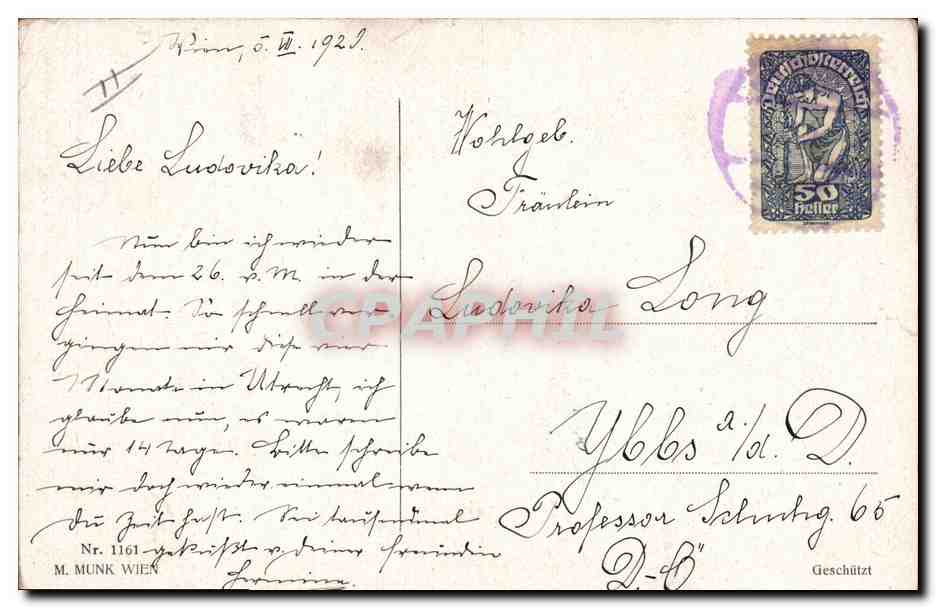 Wien, 5. VII. 1920.
11
Liebe Ludovika!
Nun bin ich wieder
seit dem 26. v. M. in der
Heimat. So schnell ver-
gingen mir diese vier
Monate in Utrecht, ich
glaube nun, es waren
nur 14 Tage. Bitte schreibe
mir doch wieder einmal wenn
Du Zeit hast. Sei tausendmal
geküßt v. Deiner Freundin
Hermine.
Nr. 1161
M. MUNK WIEN
Deutschösterreich
50
Heller
Wohlgeb.
Fräulein
Ludovika Long
Ybbs a/d. D.
Professor 65
D.-Ö
Geschützt
CPAPHIL